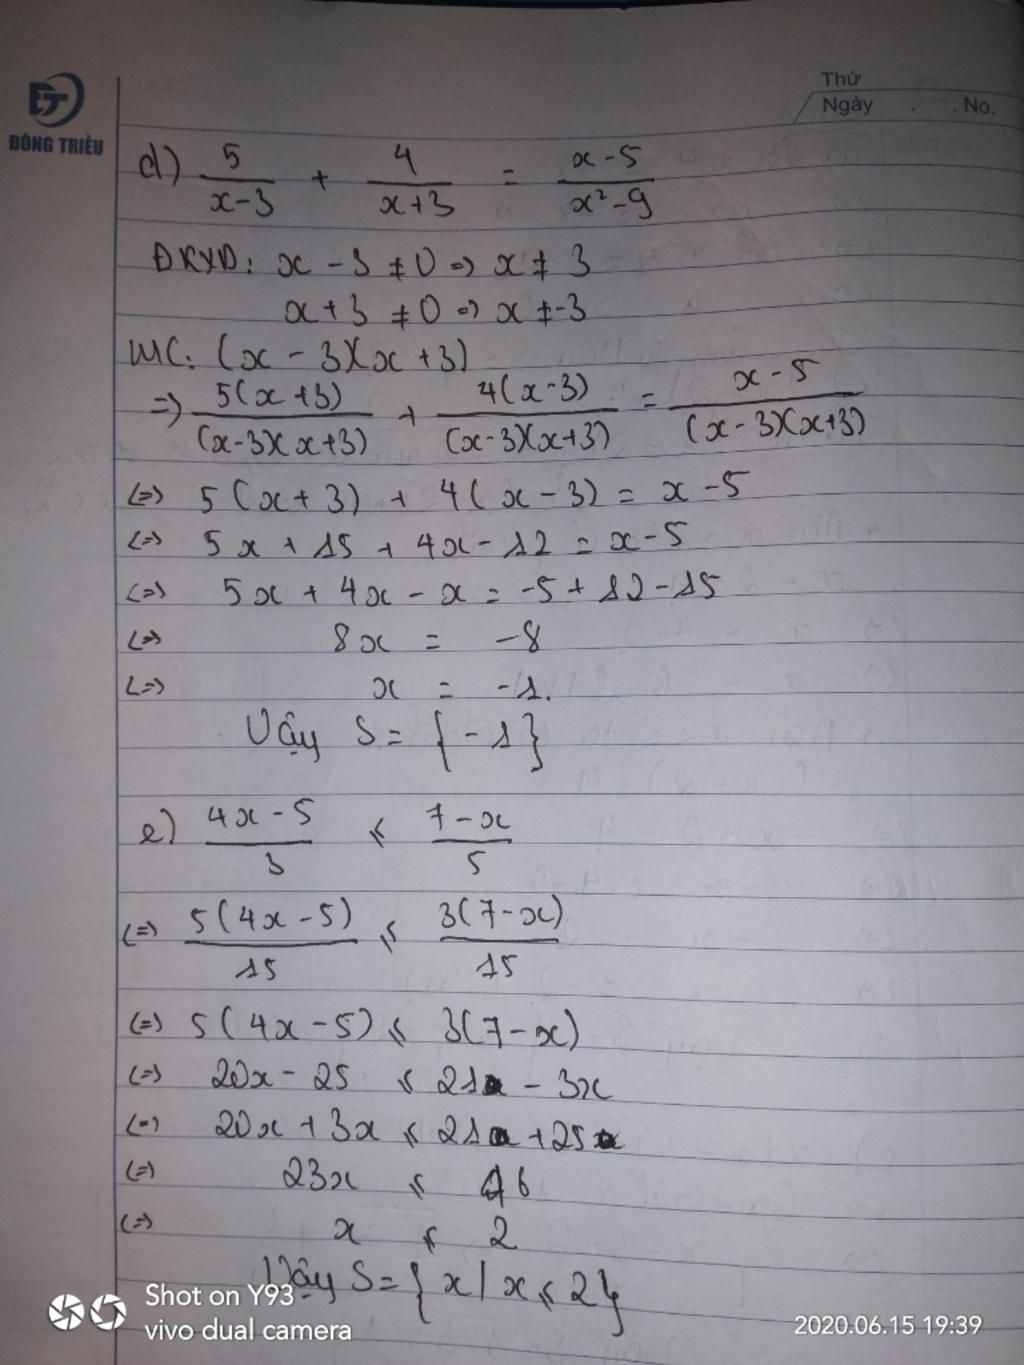 ĐÔNG TRIỀU
Thứ
Ngày . . No.
d) 5/(x-3) + 4/(x+3) = (x-5)/(x²-9)
ĐKXĐ: x - 3 ≠ 0 => x ≠ 3
x + 3 ≠ 0 => x ≠ -3
MC: (x - 3)(x + 3)
=> 5(x+3)/((x-3)(x+3)) + 4(x-3)/((x-3)(x+3)) = (x-5)/((x-3)(x+3))
<=> 5(x+3) + 4(x-3) = x-5
<=> 5x + 15 + 4x - 12 = x-5
<=> 5x + 4x - x = -5 + 12 - 15
<=> 8x = -8
<=> x = -1.
Vậy S = {-1}
e) (4x-5)/3 ≤ (7-x)/5
<=> 5(4x-5)/15 ≤ 3(7-x)/15
<=> 5(4x-5) ≤ 3(7-x)
<=> 20x - 25 ≤ 21 - 3x
<=> 20x + 3x ≤ 21 + 25
<=> 23x ≤ 46
<=> x ≤ 2
Vậy S = {x/x ≤ 2}
Shot on Y93
vivo dual camera
2020.06.15 19:39